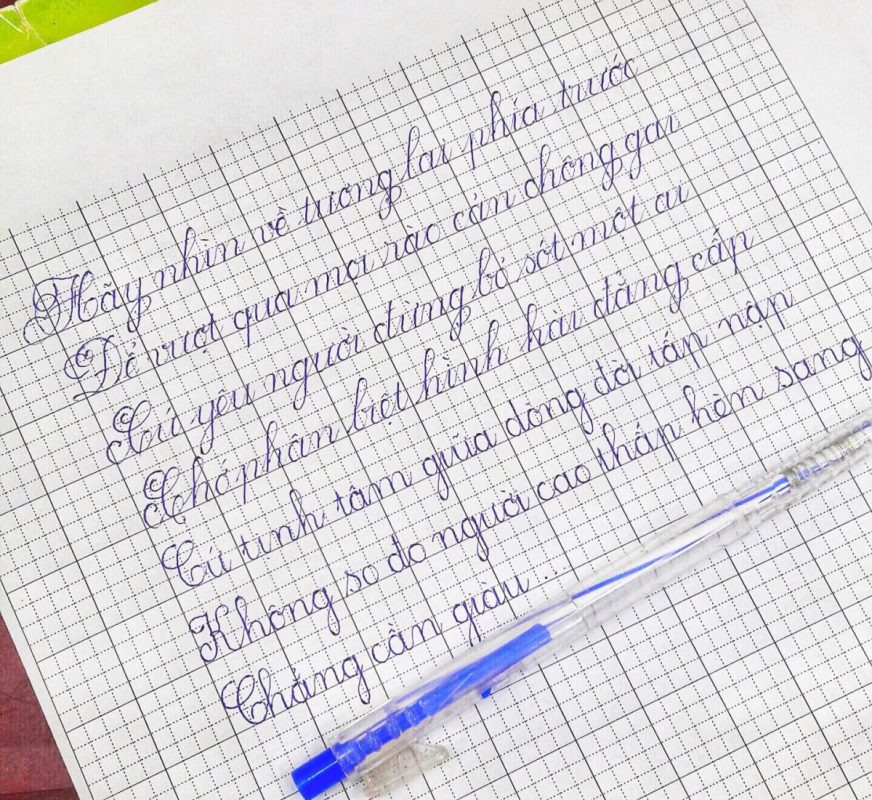 Hãy nhìn về tương lai phía trước
Để vượt qua mọi rào cản chông gai
Cứ yêu người đừng bỏ sót một ai
Chớ phân biệt hình hài đẳng cấp
Cứ tịnh tâm giữa dòng đời tấp nập
Không so đo người cao thấp hèn sang
Chẳng cần giàu ...